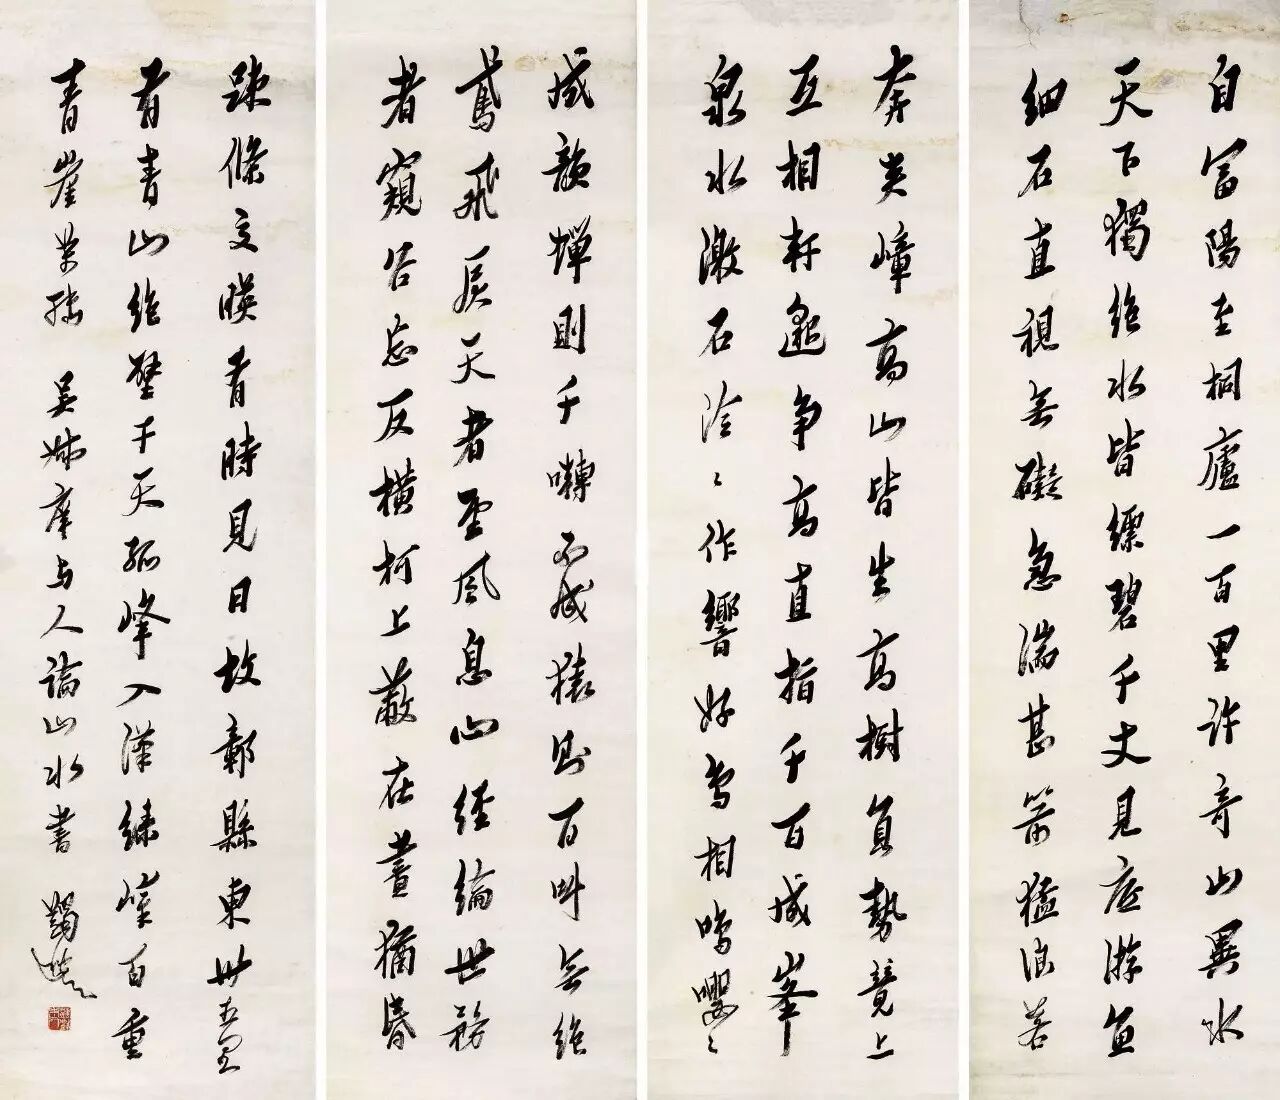 自富陽至桐廬一百里許奇山異水
天下獨絕水皆縹碧千丈見底游魚
細石直視無礙急湍甚箭猛浪若
奔夾嶂高山皆生高樹負勢競上
互相軒邈爭高直指千百成峯
泉水激石泠〻作響好鳥相鳴嚶〻
成韻蟬則千囀不成猿則百叫無絕
鳶飛戾天者望風息心經綸世務
者窺谷忘反橫柯上蔽在晝猶昏
疎條交暎有時見日故鄣縣東卅五里
有青山絕壁干天孤峰入漢綠嶂百重
青崖萬轉 吳叔庠与人論山水書